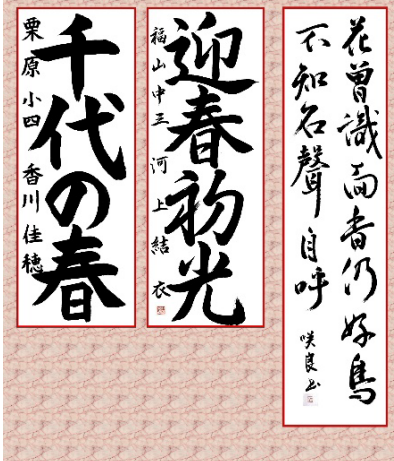 花曽識面香仍好鳥
不知名聲自呼 咲良书
迎春初光
福山中三 河上結衣
千代の春
栗原小四 香川佳穂